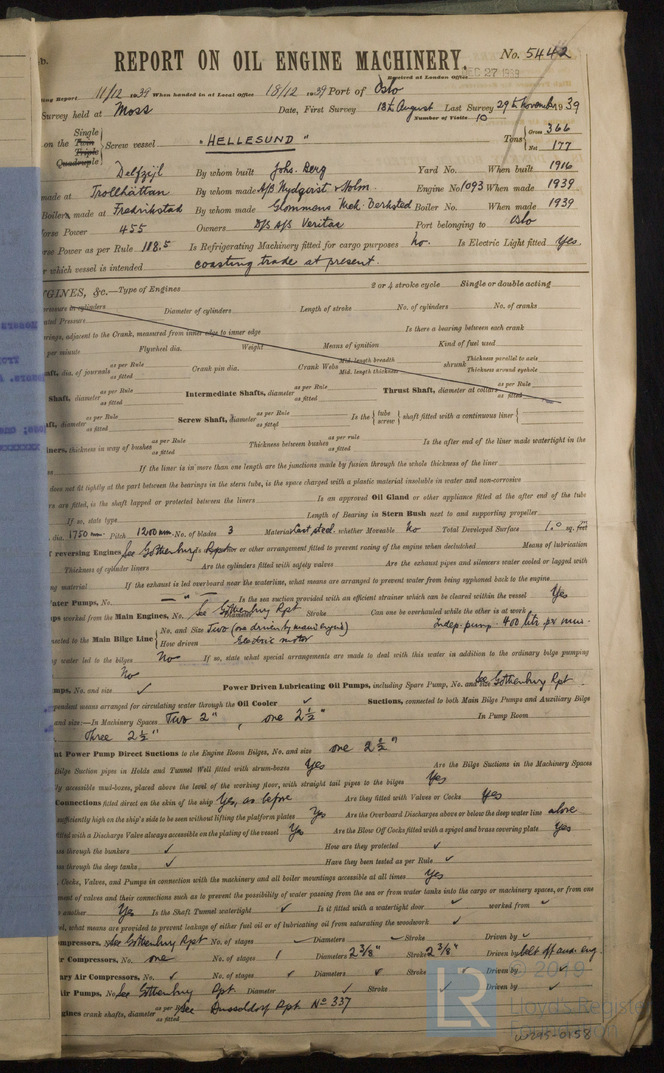 REPORT ON OIL ENGINE MACHINERY.
No. 5442
Received at London Office
DEC 27 1939
Report 11/12 1939 When handed in at Local Office 18/12 1939 Port of Oslo
Survey held at Moss Date, First Survey 18th August Last Survey 29th November 1939
Number of Visits 10
on the Single Twin Triple Quadruple Screw vessel "HELLESUND" Tons Gross 366 Net 177
Delfzijl By whom built Johs. Berg Yard No. When built 1916
made at Trollhättan By whom made A/B Nydqvist & Holm. Engine No 1093 When made 1939
Boilers made at Fredrikstad By whom made Glommens Mek. Verksted Boiler No. When made 1939
Horse Power 455 Owners D/S A/S Veritas Port belonging to Oslo
Horse Power as per Rule 118.5 Is Refrigerating Machinery fitted for cargo purposes No. Is Electric Light fitted Yes.
for which vessel is intended coasting trade at present.
ENGINES, &c.—Type of Engines 2 or 4 stroke cycle Single or double acting
pressure in cylinders Diameter of cylinders Length of stroke No. of cylinders No. of cranks
Pressure
adjacent to the Crank, measured from inner edge to inner edge Is there a bearing between each crank
per minute Flywheel dia. Weight Means of ignition Kind of fuel used
dia. of journals as per Rule as fitted Crank pin dia. Crank Webs Mid. length breadth Mid. length thickness shrunk Thickness parallel to axis Thickness around eyehole
Shaft, diameter as per Rule as fitted Intermediate Shafts, diameter as per Rule as fitted Thrust Shaft, diameter at collars as per Rule as fitted
as per Rule as fitted Screw Shaft, diameter as per Rule as fitted Is the tube screw shaft fitted with a continuous liner
thickness in way of bushes as per Rule as fitted Thickness between bushes as per rule as fitted Is the after end of the liner made watertight in the
If the liner is in more than one length are the junctions made by fusion through the whole thickness of the liner
does not fit tightly at the part between the bearings in the stern tube, is the space charged with a plastic material insoluble in water and non-corrosive
are fitted, is the shaft lapped or protected between the liners Is an approved Oil Gland or other appliance fitted at the after end of the tube
If so, state type Length of Bearing in Stern Bush next to and supporting propeller
dia. 1750 Pitch 1200 mm. No. of blades 3 Material Cast steel. whether Moveable No Total Developed Surface 1.0 sq. feet
reversing Engines See Gothenburg Rpt or other arrangement fitted to prevent racing of the engine when declutched Means of lubrication
Thickness of cylinder liners Are the cylinders fitted with safety valves Are the exhaust pipes and silencers water cooled or lagged with
material If the exhaust is led overboard near the waterline, what means are arranged to prevent water from being syphoned back to the engine
Water Pumps, No. — " — Is the sea suction provided with an efficient strainer which can be cleared within the vessel Yes
worked from the Main Engines, No. See Gothenburg Rpt Stroke Can one be overhauled while the other is at work
connected to the Main Bilge Line No. and Size Two (one driven by main engine) Indep. pump 400 litr. per min.
How driven Electric motor
water led to the bilges No If so, state what special arrangements are made to deal with this water in addition to the ordinary bilge pumping
No
Pumps, No. and size ✓ Power Driven Lubricating Oil Pumps, including Spare Pump, No. and size See Gothenburg Rpt.
means arranged for circulating water through the Oil Cooler ✓ Suctions, connected to both Main Bilge Pumps and Auxiliary Bilge
and size:—In Machinery Spaces Two 2", one 2½" In Pump Room
Three 2½"
Power Pump Direct Suctions to the Engine Room Bilges, No. and size one 2½"
Bilge Suction pipes in Holds and Tunnel Well fitted with strum-boxes Yes Are the Bilge Suctions in the Machinery Spaces
accessible mud-boxes, placed above the level of the working floor, with straight tail pipes to the bilges Yes
Connections fitted direct on the skin of the ship Yes, as before Are they fitted with Valves or Cocks Yes
sufficiently high on the ship's side to be seen without lifting the platform plates Yes Are the Overboard Discharges above or below the deep water line above
fitted with a Discharge Valve always accessible on the plating of the vessel Yes Are the Blow Off Cocks fitted with a spigot and brass covering plate Yes
through the bunkers ✓ How are they protected ✓
through the deep tanks ✓ Have they been tested as per Rule ✓
Cocks, Valves, and Pumps in connection with the machinery and all boiler mountings accessible at all times Yes
of valves and their connections such as to prevent the possibility of water passing from the sea or from water tanks into the cargo or machinery spaces, or from one
another Yes Is the Shaft Tunnel watertight ✓ Is it fitted with a watertight door ✓ worked from ✓
what means are provided to prevent leakage of either fuel oil or of lubricating oil from saturating the woodwork ✓
Compressors, No. See Gothenburg Rpt No. of stages ✓ Diameters ✓ Stroke Driven by ✓
Compressors, No. one No. of stages 1 Diameters 2 3/8" Stroke 2 3/8" Driven by belt off aux. eng.
Air Compressors, No. ✓ No. of stages ✓ Diameters ✓ Stroke ✓ Driven by ✓
Air Pumps, No. See Gothenburg Rpt Diameter ✓ Stroke ✓ Driven by ✓
Engines crank shafts, diameter as per Rule as fitted See Dusseldorf Rpt No 337
LR © 2019
Lloyd's Register
Foundation
W295-0158